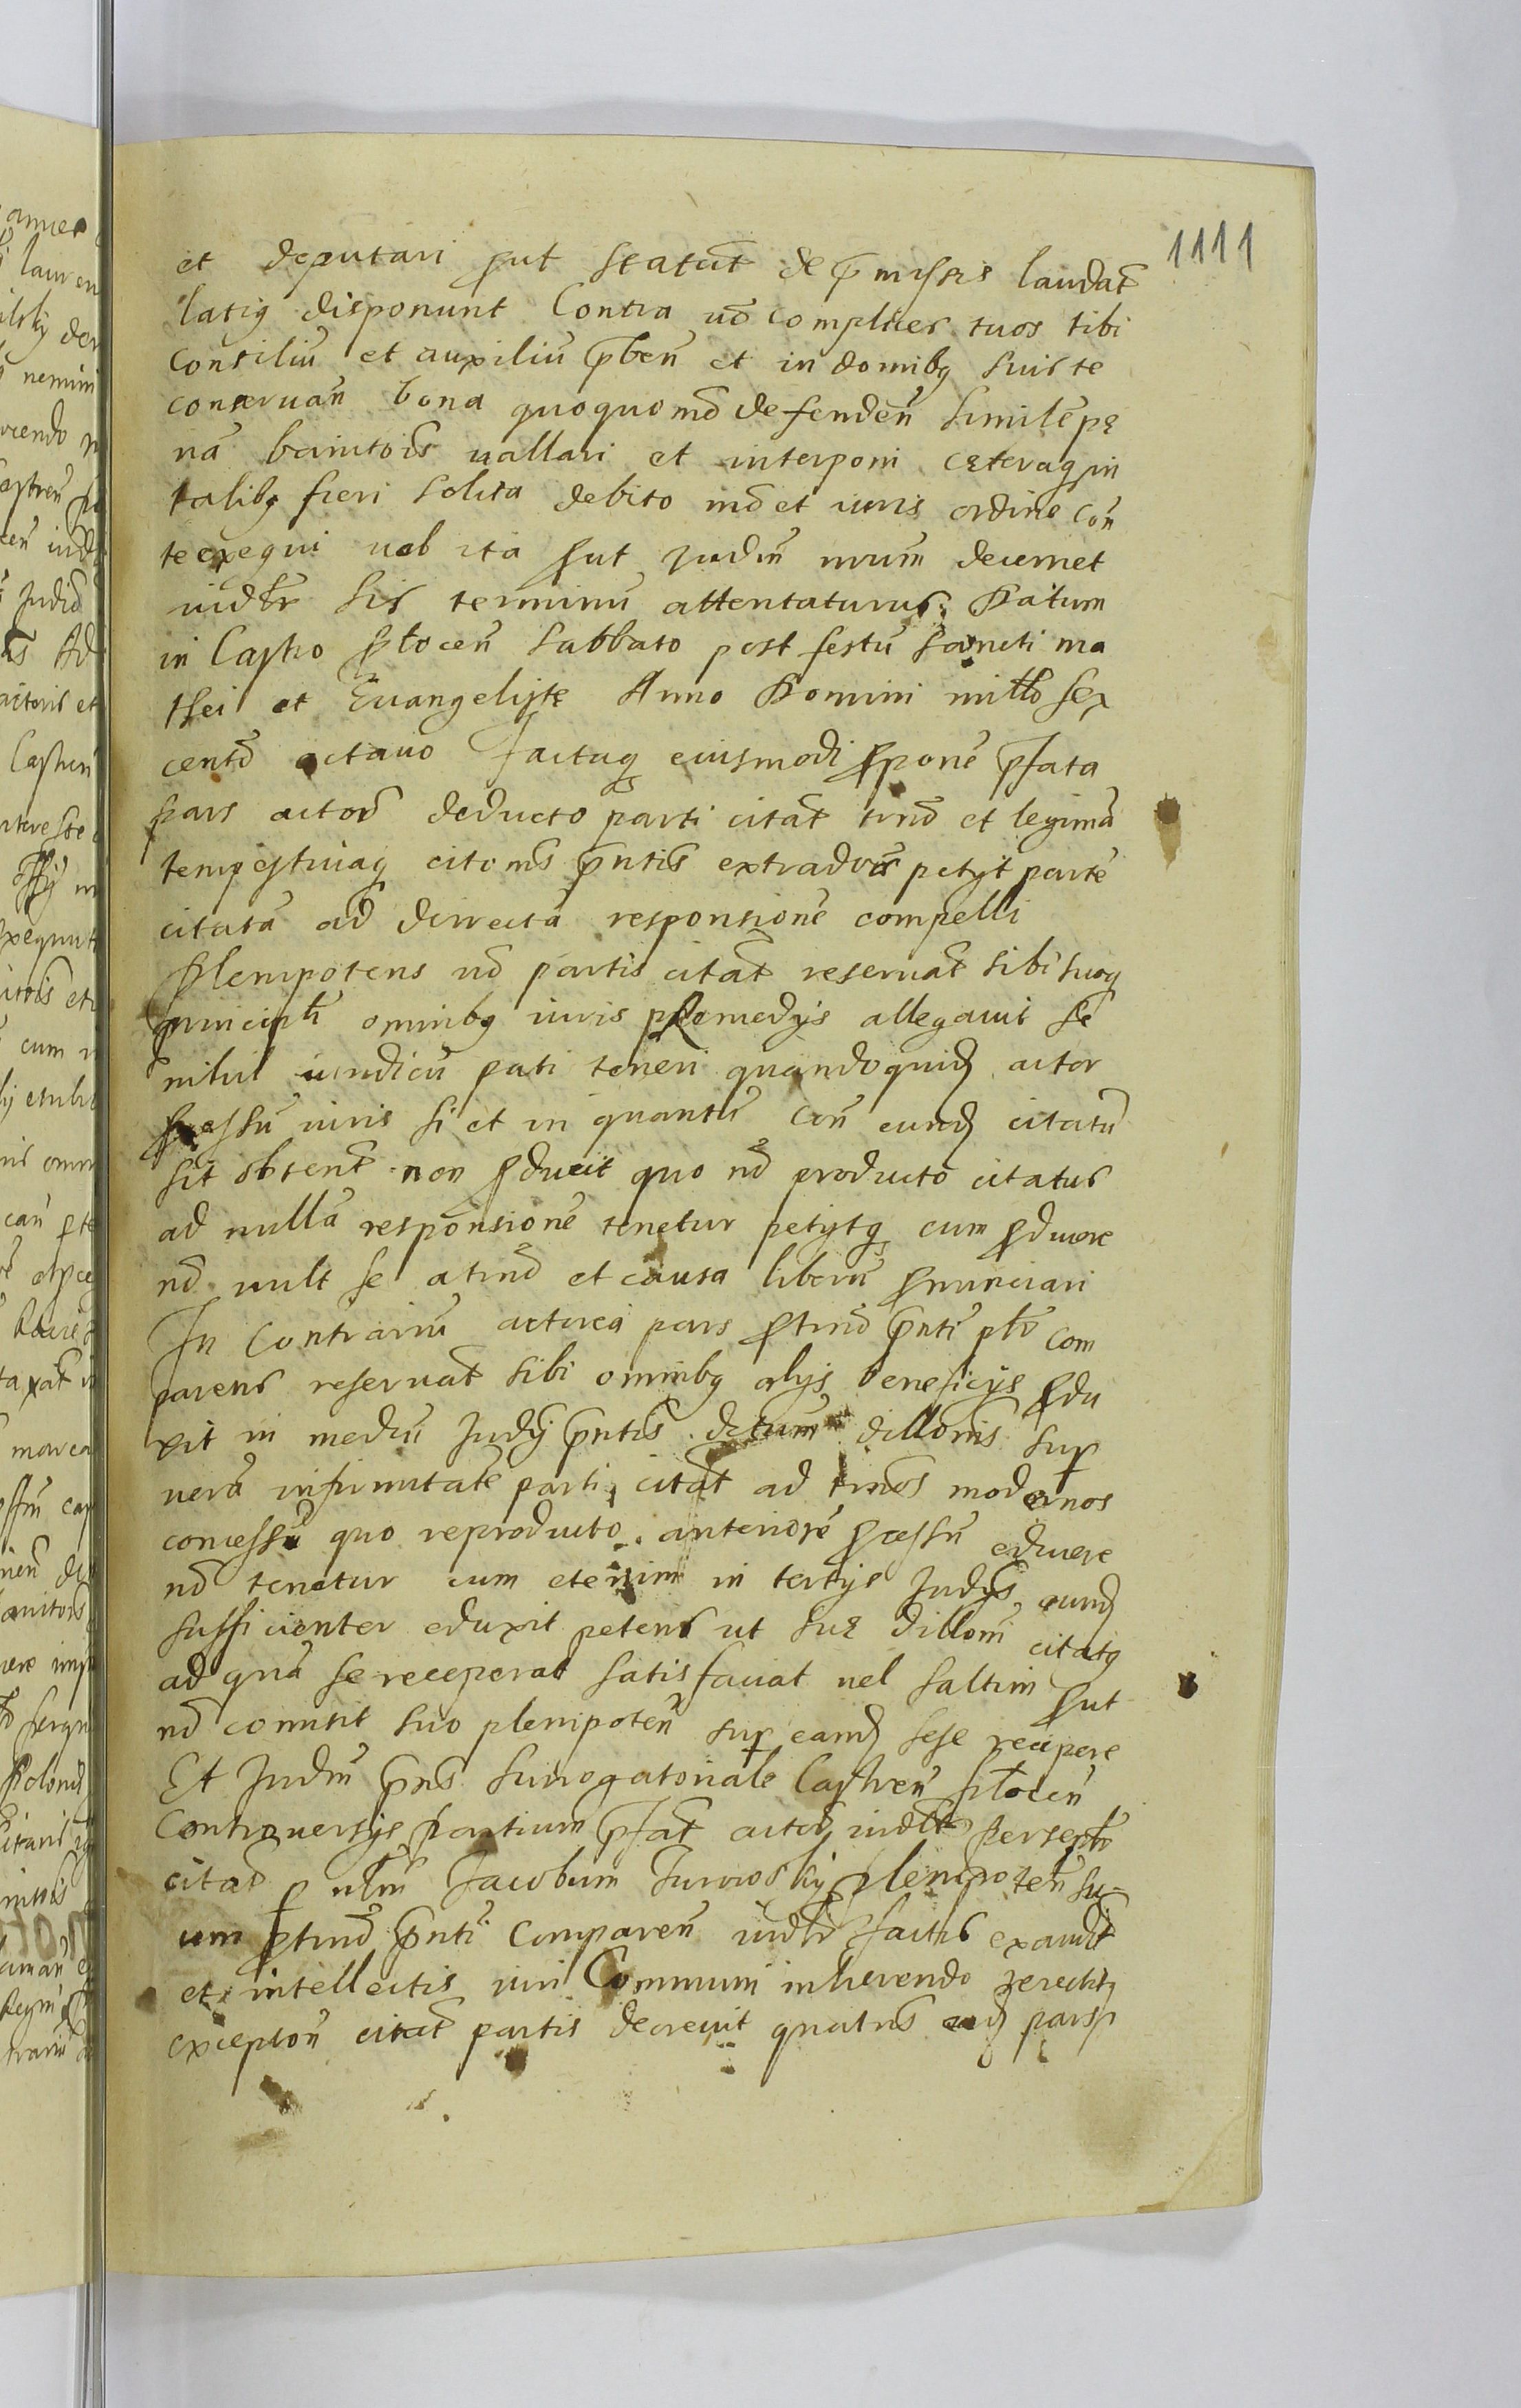 1111
et deputari ꝓut statut de p̄missis laudat
latiꝫ disponunt Contra ūo complices tuos tibi
consiliū et auxiliū p̄ben̄ et in domibꝫ suis te
conseruan̄ bona quoquo mō defenden̄ similē pę
nā banitōis uallari et interponi cęteraqꝫ in
talibꝫ fieri solita debito mō et iuris ordine con̄
te exequi uel ita ꝓut Judm̄ nrum decernet
iudlr sis terminū attentaturus. Datum
in Castro Plocen̄ sabbato post festū sancti ma
thei et Euangelistę Anno Domini millo sex
centō octauo factaqꝫ eiusmodi ꝓponē p̄fata
pars actorē deducto parti citat tmō et legimā
tempestiuaqꝫ citonīs p̄ntis extradōīs petyt partē
citatā ad directā responsionē compelli
Plenipotens ūo partis citat reseruat sibi suoqꝫ
principli omnibꝫ iuris remedys allegauit se
nihil iuridicū pati teneri quandoquidꝫ actor
ꝓcessū iuris si et in quantū con̄ eundꝫ citatū
sit obtent non ꝓducit quo nō producto citatus
ad nullā responsionē tenetur petytqꝫ cum ꝓducere
nō uult se a tmō et causa liberū ꝓnunciari
In Contrariū actorea pars ꝑ tmō p̄nti pltr com
parens reseruat sibi omnibꝫ alys beneficys ꝓdu
xit in mediū Judy p̄ntis dictum dillonīs suꝑ
uerā infirmitatē parti citat ad tmōs modernos
concessū quo reproducto anteriorē ꝓcessū educere
nō tenetur cum etenim in tertys Judys eundꝫ
sufficienter eduxit petens ut suę dilloni citatꝫ
ad quā se receperat satisfaciat uel saltim ꝓut
nō comisit suo plenipoten̄ suꝑ eandꝫ sese recipere
Et Judm̄ p̄ns Surrogatoriale Castren̄ Plocen̄
Controuersys partium p̄fat actorꝫ iudlr ꝑ se pltr
citat ꝑ nlm̄ Jacobum plenipoten̄ su-
um ꝑ tmō p̄nti comparen̄ iudlr factis exaudit
et intellectis iuri Communi inherendo
exceptōn̄ citat partis decreuit quatns eadꝫ pars